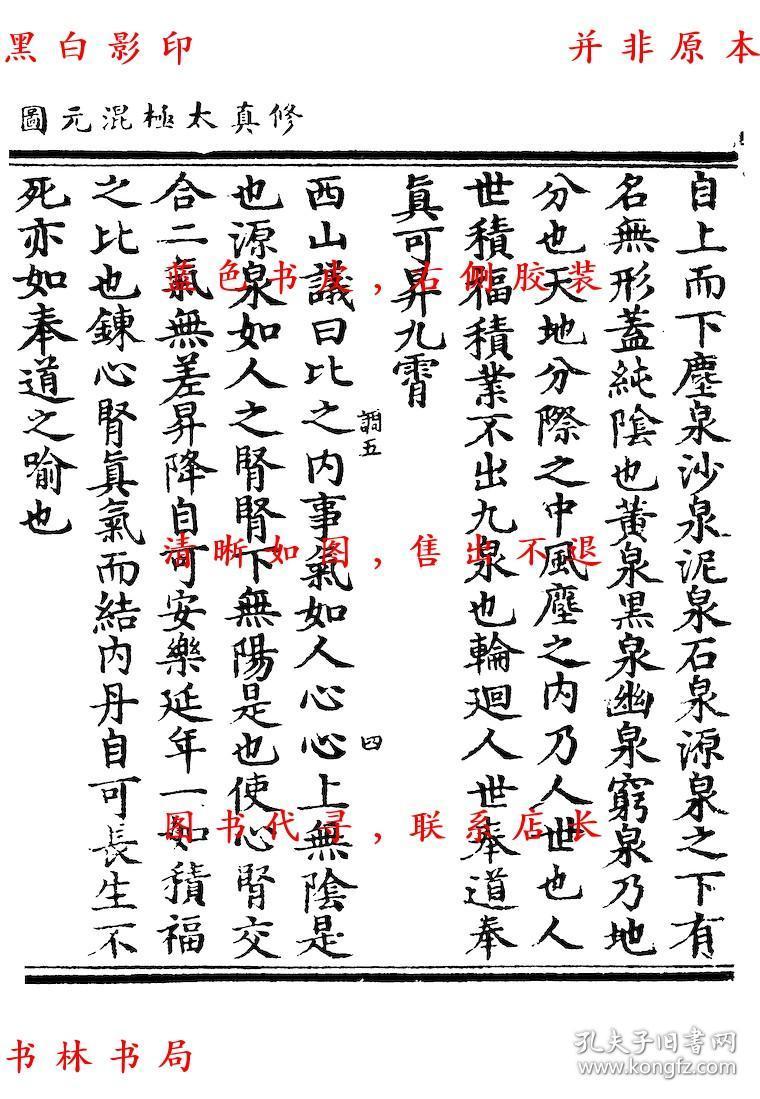 黑白影印
并非原本
修真太極混元圖
自上而下塵泉沙泉泥泉石泉源泉之下有
名無形蓋純陰也黄泉黑泉幽泉窮泉乃地
分也天地分際之中風塵之内乃人世也人
世積福積業不出九泉也輪廻人世奉道奉
眞可昇九霄
調五
四
西山議曰比之内事氣如人心心上無陰是
也源泉如人之腎腎下無陽是也使心腎交
合二氣無差昇降自可安樂延年一如積福
之比也鍊心腎眞氣而結内丹自可長生不
死亦如奉道之喻也
蓝色书皮,右侧胶装
清晰如图,售出不退
图书代寻,联系店长
书林书局
孔夫子旧书网
www.kongfz.com